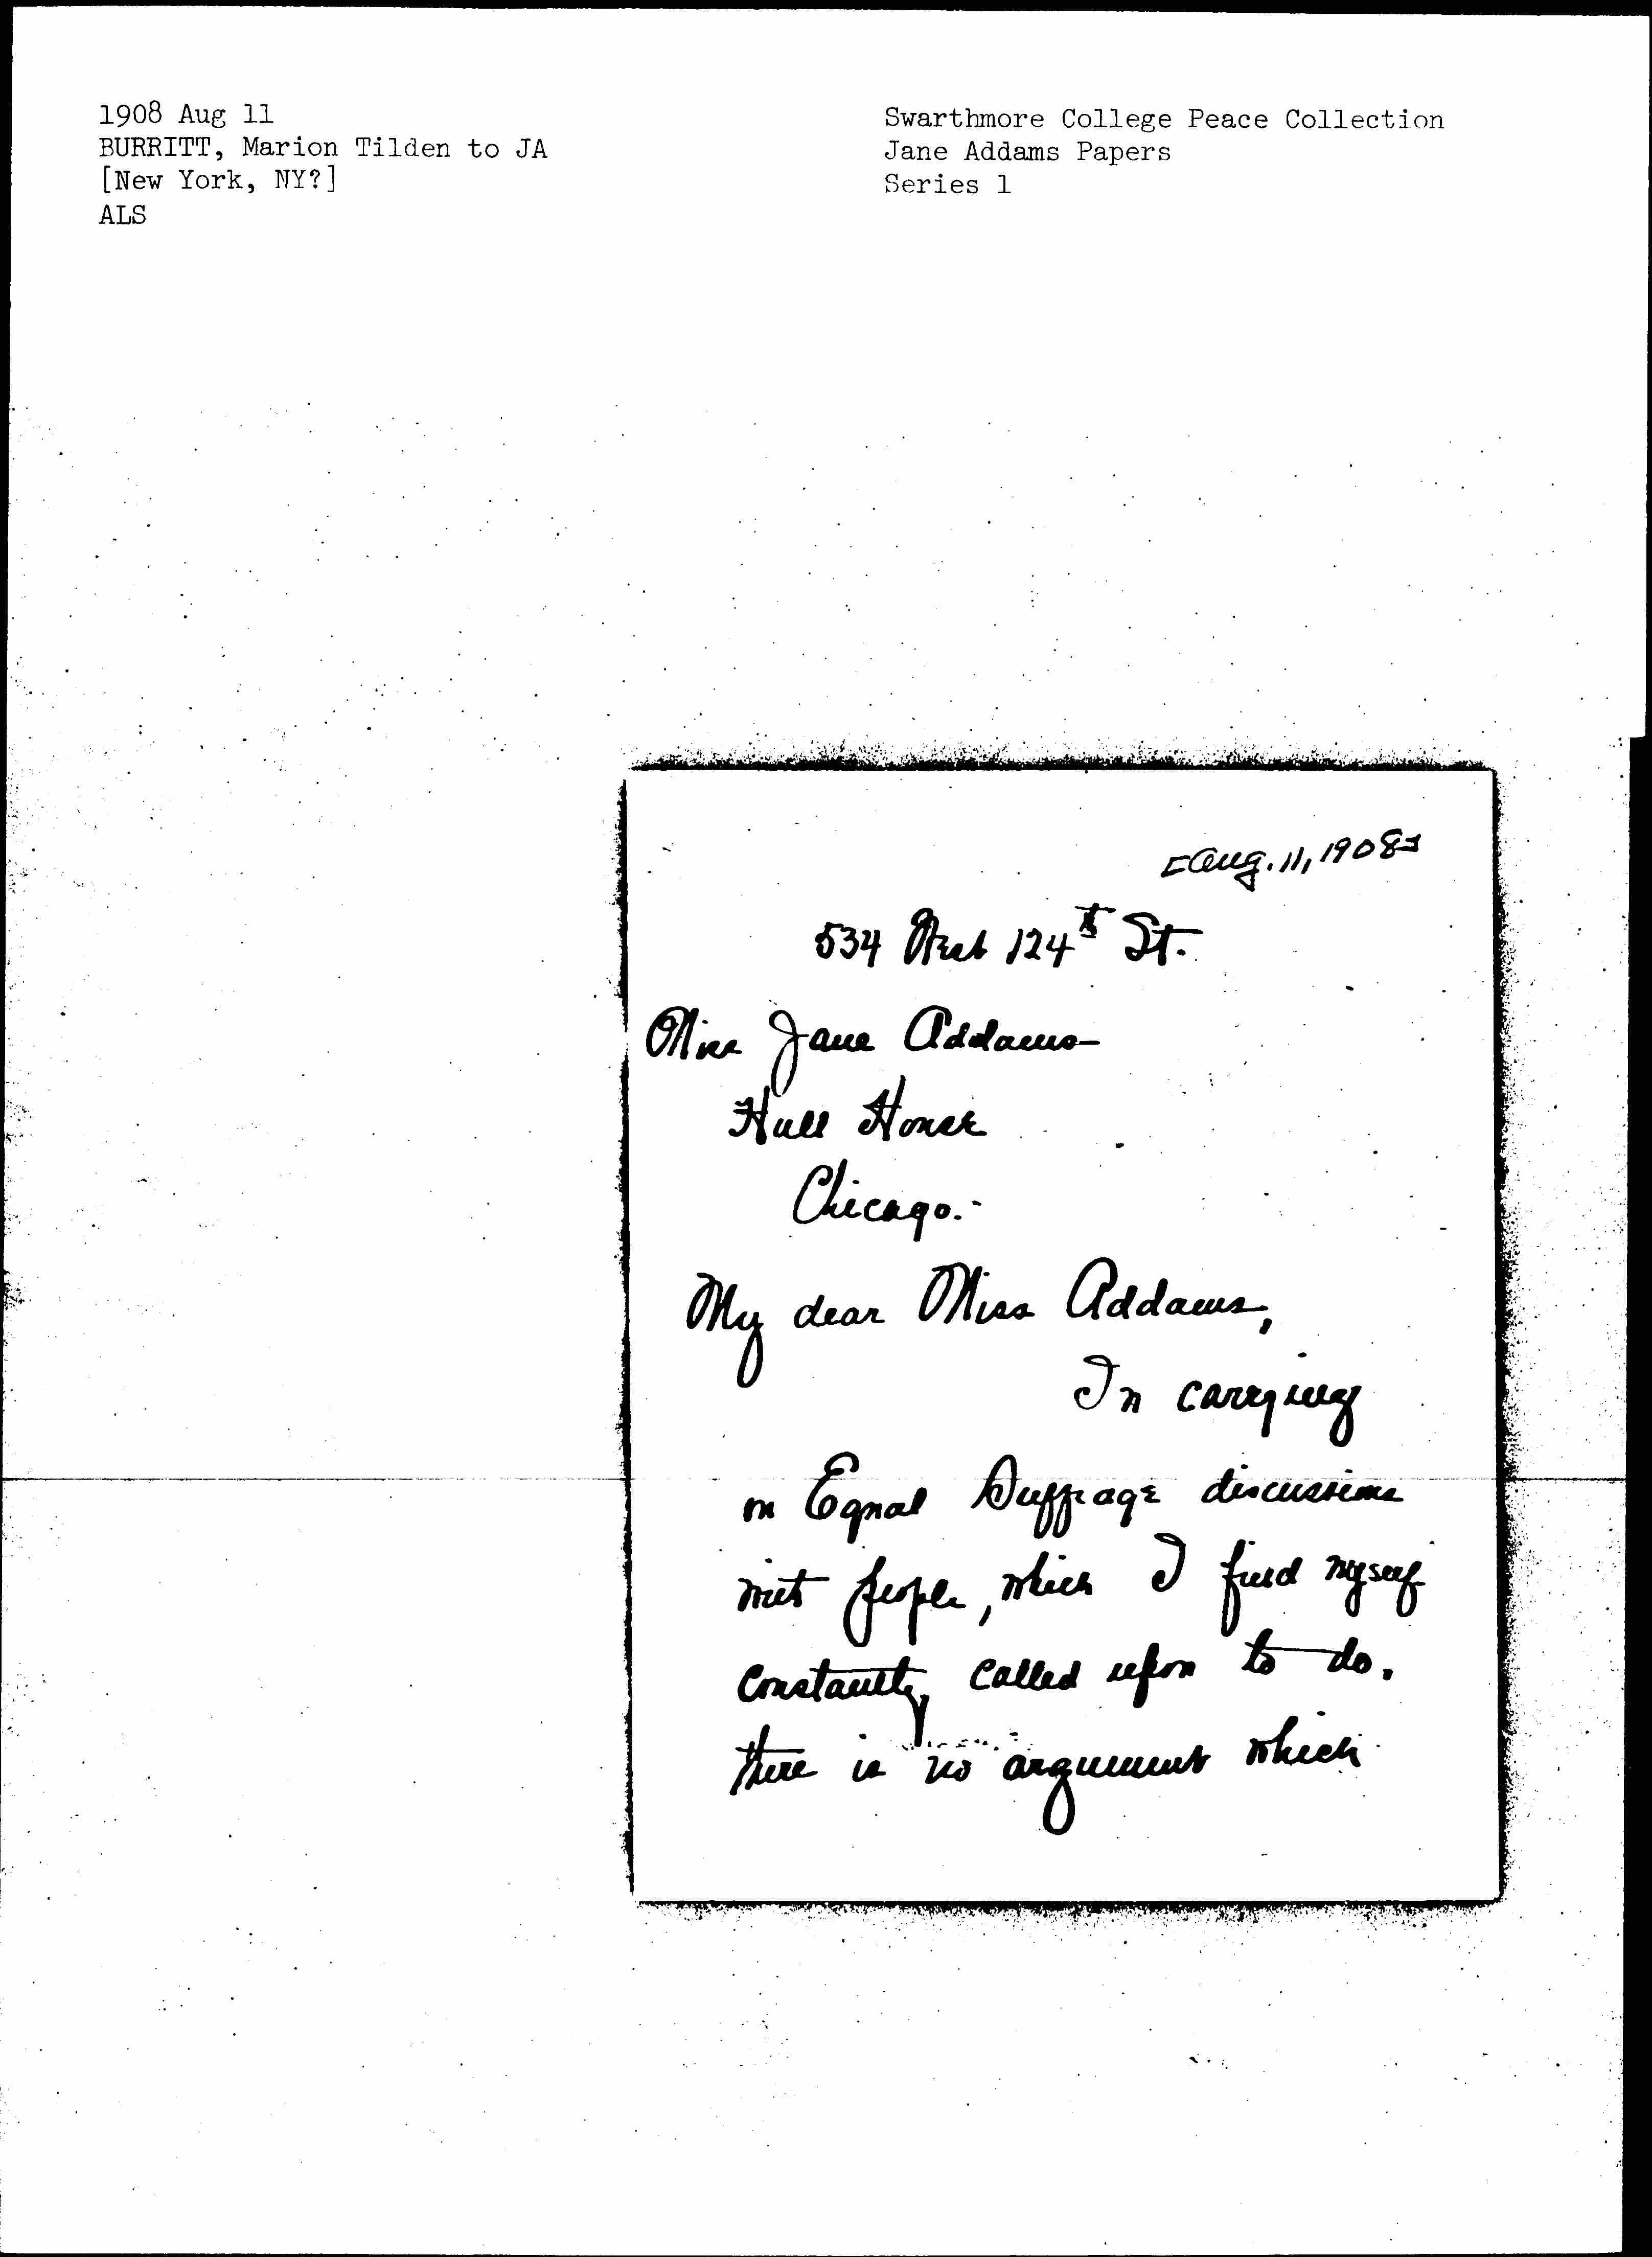 1908 Aug 11
BURRITT, Marion Tilden to JA
[New York, NY?]
ALS
Swarthmore College Peace Collection
Jane Addams Papers
Series 1
[Aug. 11, 1908]
534 West 124th St.
Miss Jane Addams
Hull House
Chicago.-
My dear Miss Addams,
In carrying
on Equal Suffrage discussions
with people, which I find myself
constantly called upon to do.
there is no argument which